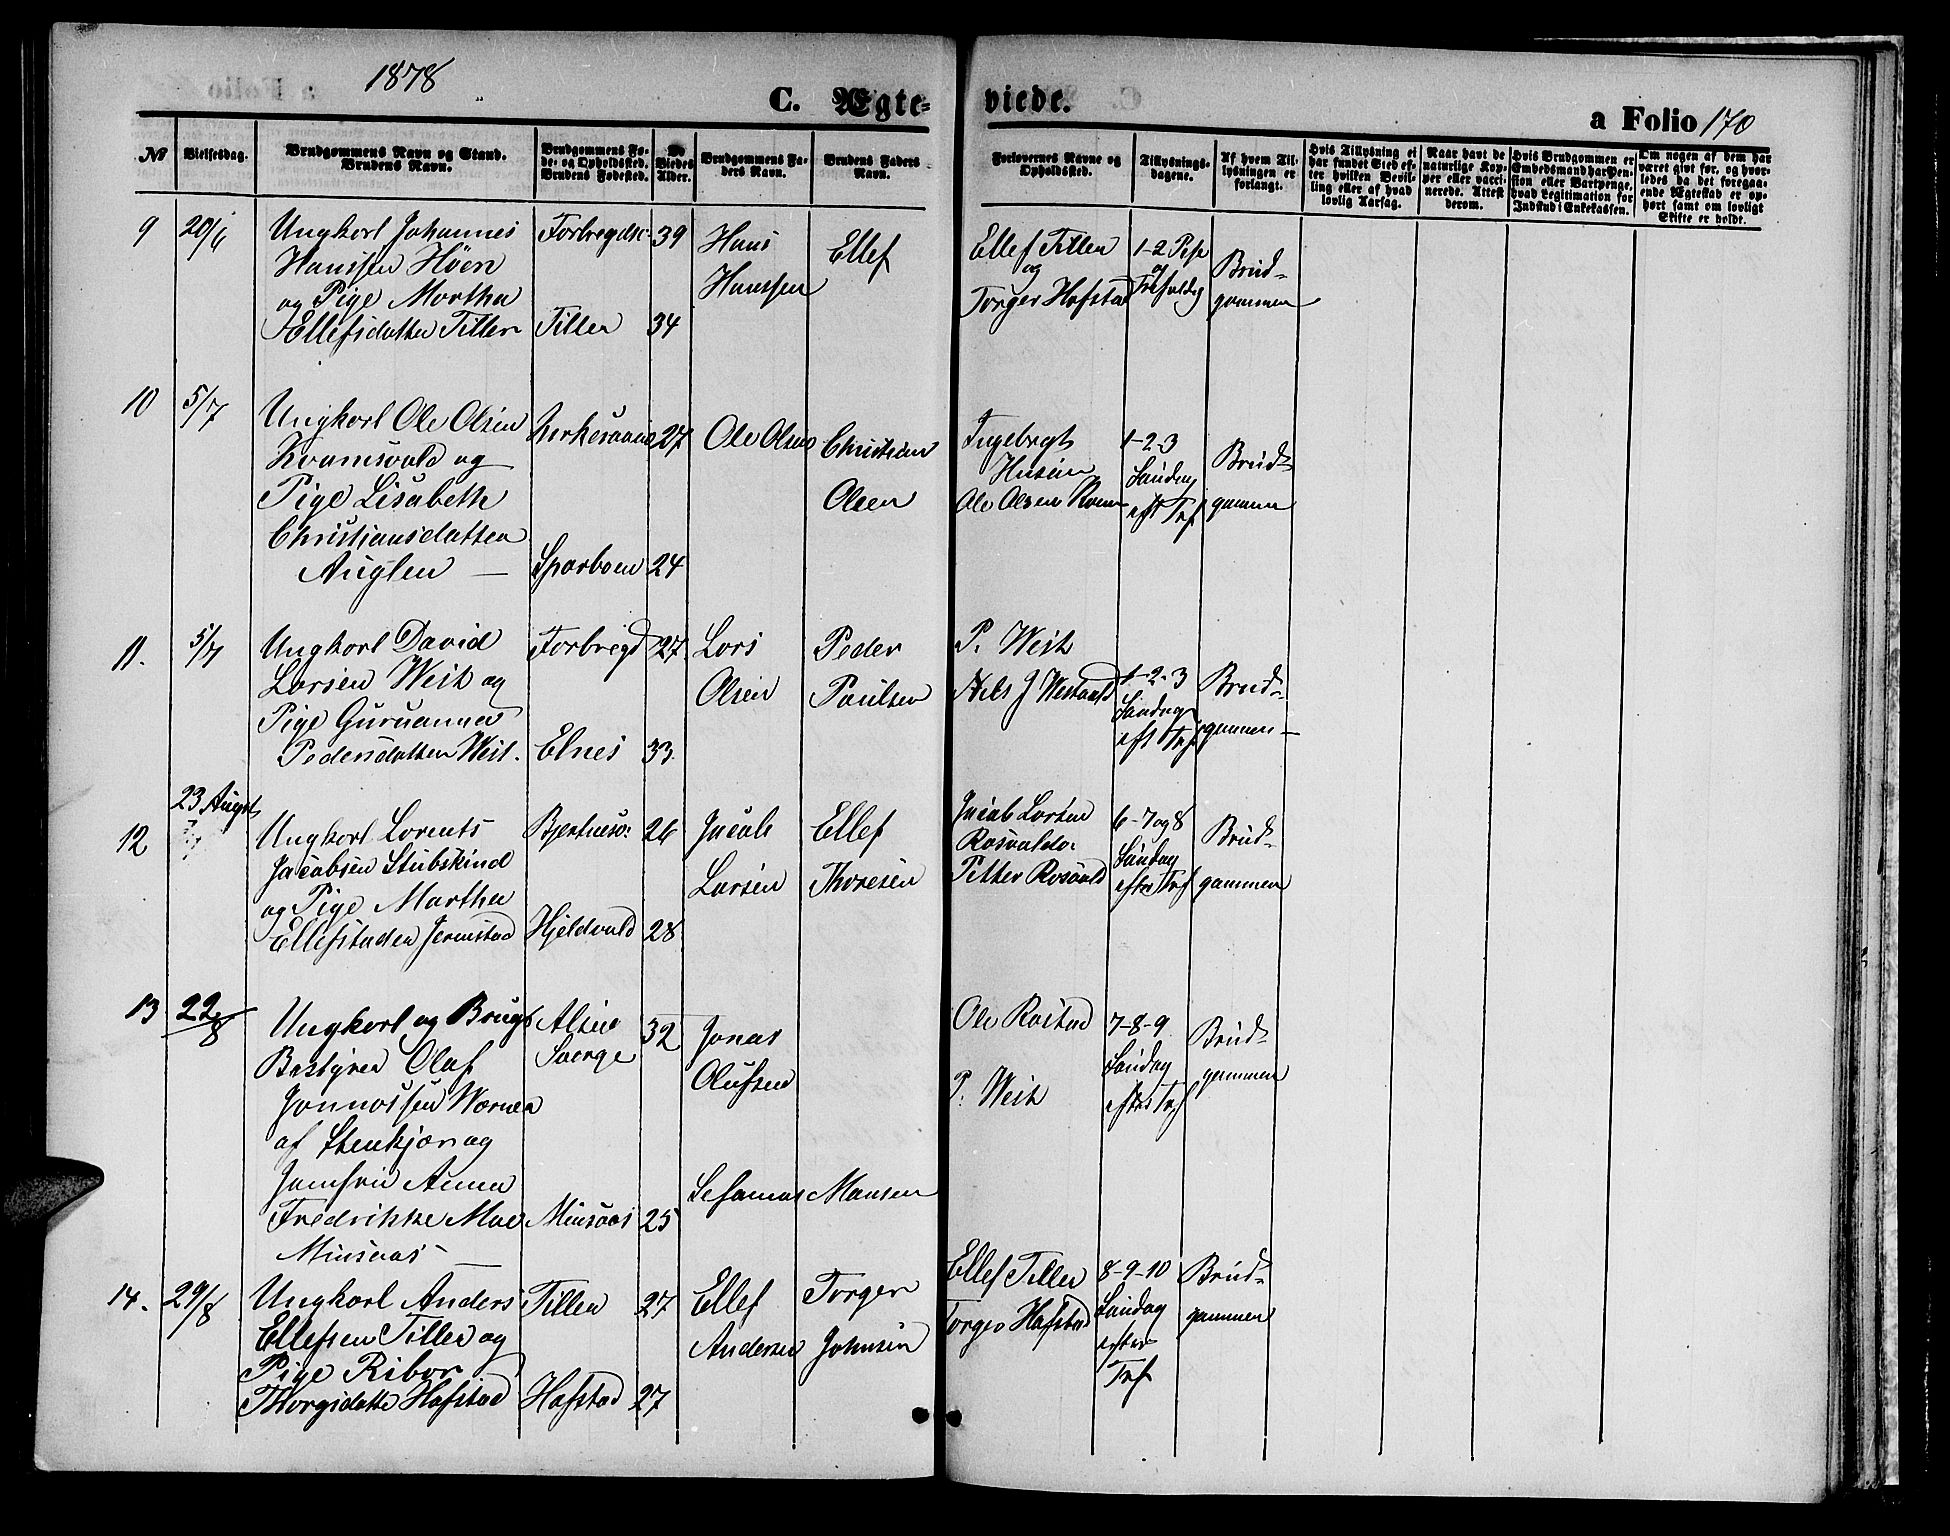 1878
C. Ægte-
viede.
a Folio 170
No
Vielsesdag.
Brudgommens Navn og Stand.
Brudens Navn.
Brudgommens Fø-
de- og Opholdssted.
Brudens Fødested.
De
Viedes
Alder.
Brudgommens Fa-
ders Navn.
Brudens Faders
Navn.
Forlovernes Navne og
Opholdssted.
Tillysnings-
dagene.
Af hvem Til-
lysningen er
forlangt.
Hvis Tillysning ei
har fundet Sted ef-
ter hvilken Bevil-
ling eller af hvad
lovlig Aarsag.
Naar havt de
naturlige Kop-
per eller vacci-
nerede. Attest
derom.
Hvis Brudgommen er
Embedsmand har Pen-
sion eller Vartpenge,
hvad Legitimation for
Indskud i Enkekassen.
Om nogen af dem har
været givt før, og hvor-
ledes da det foregaa-
ende Ægteskab er op-
hørt samt om lovligt
Skifte er holdt.
9
20/6
Ungkarl Johannes
Hanssen Höen
og Pige Martha
Ellefsdatter Tiller
Forbregdsv
Tiller
39
34
Hans
Hanssen
Ellef
Ellef Tiller
og
Torger Hafstad
1-2 Psp
og
Trefoldig
Brud-
gommen
10
5/7
Ungkarl Ole Olsen
Kvamsvald og
Pige Lisabeth
Christiansdatter
Auglen —
Sparboen
27
24
Ole Olsen
Christian
Olsen
Ingebregt
Husån
Ole Olsen
1-2-3
Søndag
eft Tref
Brud-
gommen
11.
5/7
Ungkarl David
Larsen Weik og
Pige Guruanna
Pedersdatter Weik.
Forbregd
Elnes
27
33.
Lars
Olsen
Peder
Paulsen
P. Weik
Nils J Westvold
1-2-3
Søndag
eft Tref
Brud-
gommen —
12
23 August
Ungkarl Lorents
Jacobsen Stubskind
og Pige Martha
Ellefsdatter Jermstad
Hjeldvald
26
28
Jacob
Larsen
Ellef
Thoresen
Jacob Larsen
Rosvaldv.
Petter Rosvald
6-7 og 8
Søndag
efter Tref
Brud-
gommen
13
22/8
Ungkarl og Brugs
Bestyrer Olaf
Jonnassen Werner
af Stenkjær og
Jomfru Anna
Fredrikke Moe
Minsaas —
Alsen
Sverge
Minsaas
32
25
Jonas
Olufsen
Monsen
Ole Røstad
P. Weik
7-8-9
Søndag
efter Tref
Brud-
gommen
14.
29/8
Ungkarl Anders
Ellefsen Tiller og
Pige Ribor
Thorgsdatte Hafstad
Tiller
Hafstad
27
27
Ellef
Andersen
Torger
Johnsen
Ellef Tiller
Torger Hafstad
8-9-10
Søndag
efter
Tref
Brud-
gommen